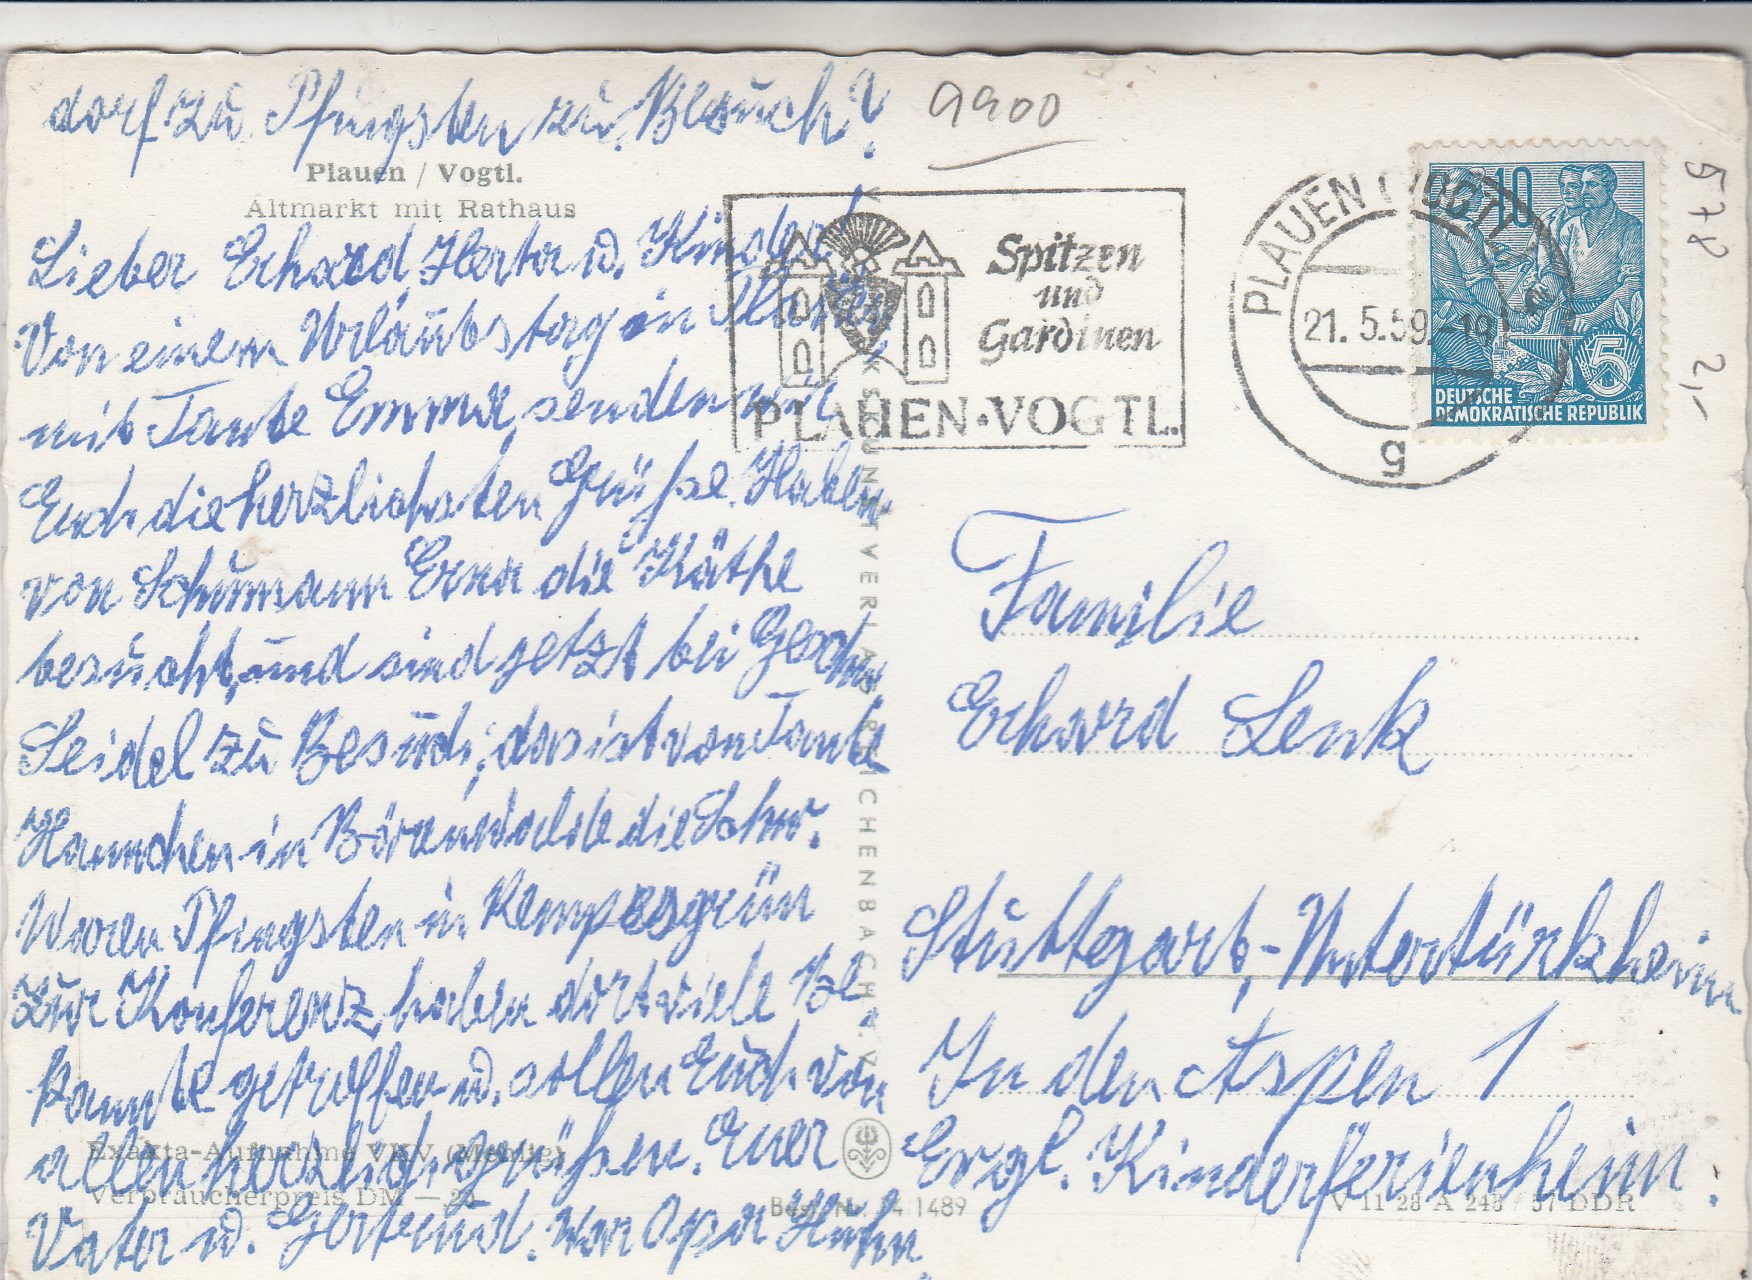 dorf zu Pfingsten zu Besuch?
9900
Plauen / Vogtl.
Altmarkt mit Rathaus
Lieber Erhard, Herta u. Kinder!
Von einem Urlaubstag in Plauen
mit Tante Emma, senden wir
Euch die herzlichsten Grüße. Haben
von Schumann Erna die Käthe
besucht, und sind jetzt bei
Seidel zu Besuch, das ist von Tante
Hannchen in Bärenwalde die Schw.
Waren Pfingsten in Rempesgrün
zur Konferenz, haben dort viele Be
kannte getroffen u. sollen Euch von
allen herzlich grüßen. Euer
Vater u. Gertrud. War Opa Hahn
Spitzen
und
Gardinen
PLAUEN·VOGTL.
PLAUEN (VOGTL)
21. 5.59.-19
g
10
5
DEUTSCHE
DEMOKRATISCHE REPUBLIK
578
2,-
Familie
Erhard Lenk
Stuttgart,-Untertürkheim
In den Aspen 1
Ergl. Kinderferienheim.
Exakta-Aufnahme VKV (Mehlig)
Verbraucherpreis DM — 20
Best.-Nr. 14 1489
V 11 28 A 243 / 57 DDR